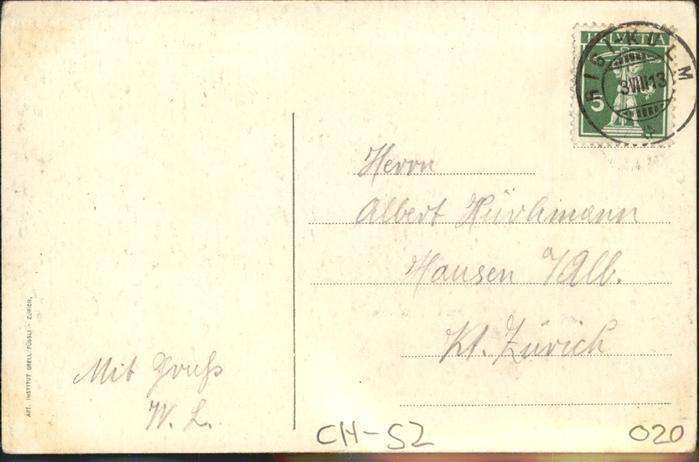 HELVETIA
SISIKON
3 VIII 13
5
Herrn
Albert Hürlimann
Hausen a/Alb.
Kt. Zürich
Mit Gruss
W. L.
ART. INSTITUT ORELL FÜSSLI - ZÜRICH.
CH-SZ
020